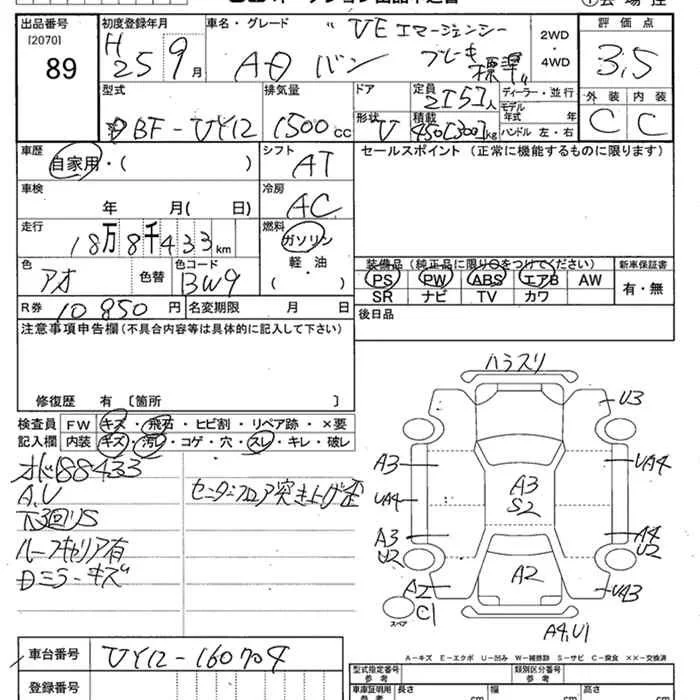 出品番号 初度登録年月 車名・グレード “VE エマージェンシー 評価点
[2070] H 25 9月 AD バン ブレーキ 標準” 2WD・4WD 3,5
89
型式 排気量 ドア 定員 ディーラー・並行 外装 内装
DBF-VY12 1500cc 2[5]人 モデル年式 年 C C
形状 V 積載 450[300]kg ハンドル 左・右
車歴 シフト セールスポイント (正常に機能するものに限ります)
自家用・( ) AT
車検 冷房
年 月( 日) AC
走行 燃料
18万8千433km ガソリン
色 色コード 軽・油 装備品(純正品に限り○をつけてください) 新車保証書
アオ 色替 BW9 ( ) PS PW ABS エアB AW 有・無
SR ナビ TV カワ
R券 10850円 名変期限 月 日 後日品
注意事項申告欄(不具合内容等は具体的に記入して下さい)
修復歴 有 [箇所 ]
検査員 FW キズ・飛石・ヒビ割・リペア跡・×要
記入欄 内装 キズ・汚レ・コゲ・穴・スレ・キレ・破レ
オド188433
A,U センターフロア突き上げ歪
下回りS
ルーフキャリア有
Dミラーキズ
ハラスリ
U3
A3 UA4
UA4 A3 S2
A3 A4
U2 U2
A2 A2 UA3
スペア C1
A4,U1
A-キズ E-エクボ U-凹み W-補修跡 S-サビ C-腐食 ××-交換済
車台番号 VY12-160704 型式指定番号 参考 類別区分番号 参考
登録番号 車庫証明用 参考 長さ cm 幅 cm 高さ cm